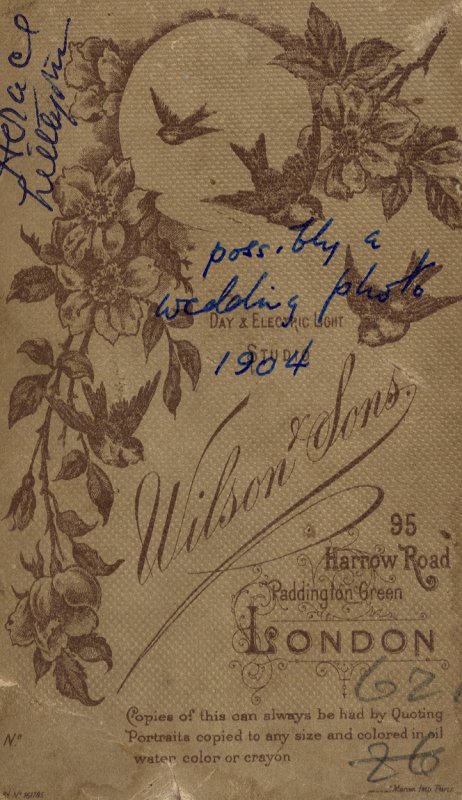 Horace
possibly a
wedding photo
1904
Day & Electric Light
Studio
Wilson & Sons.
95
Harrow Road
Paddington Green
London
62
Copies of this can always be had by Quoting
Portraits copied to any size and colored in oil
water color or crayon
No
26
Marion Imp. Paris